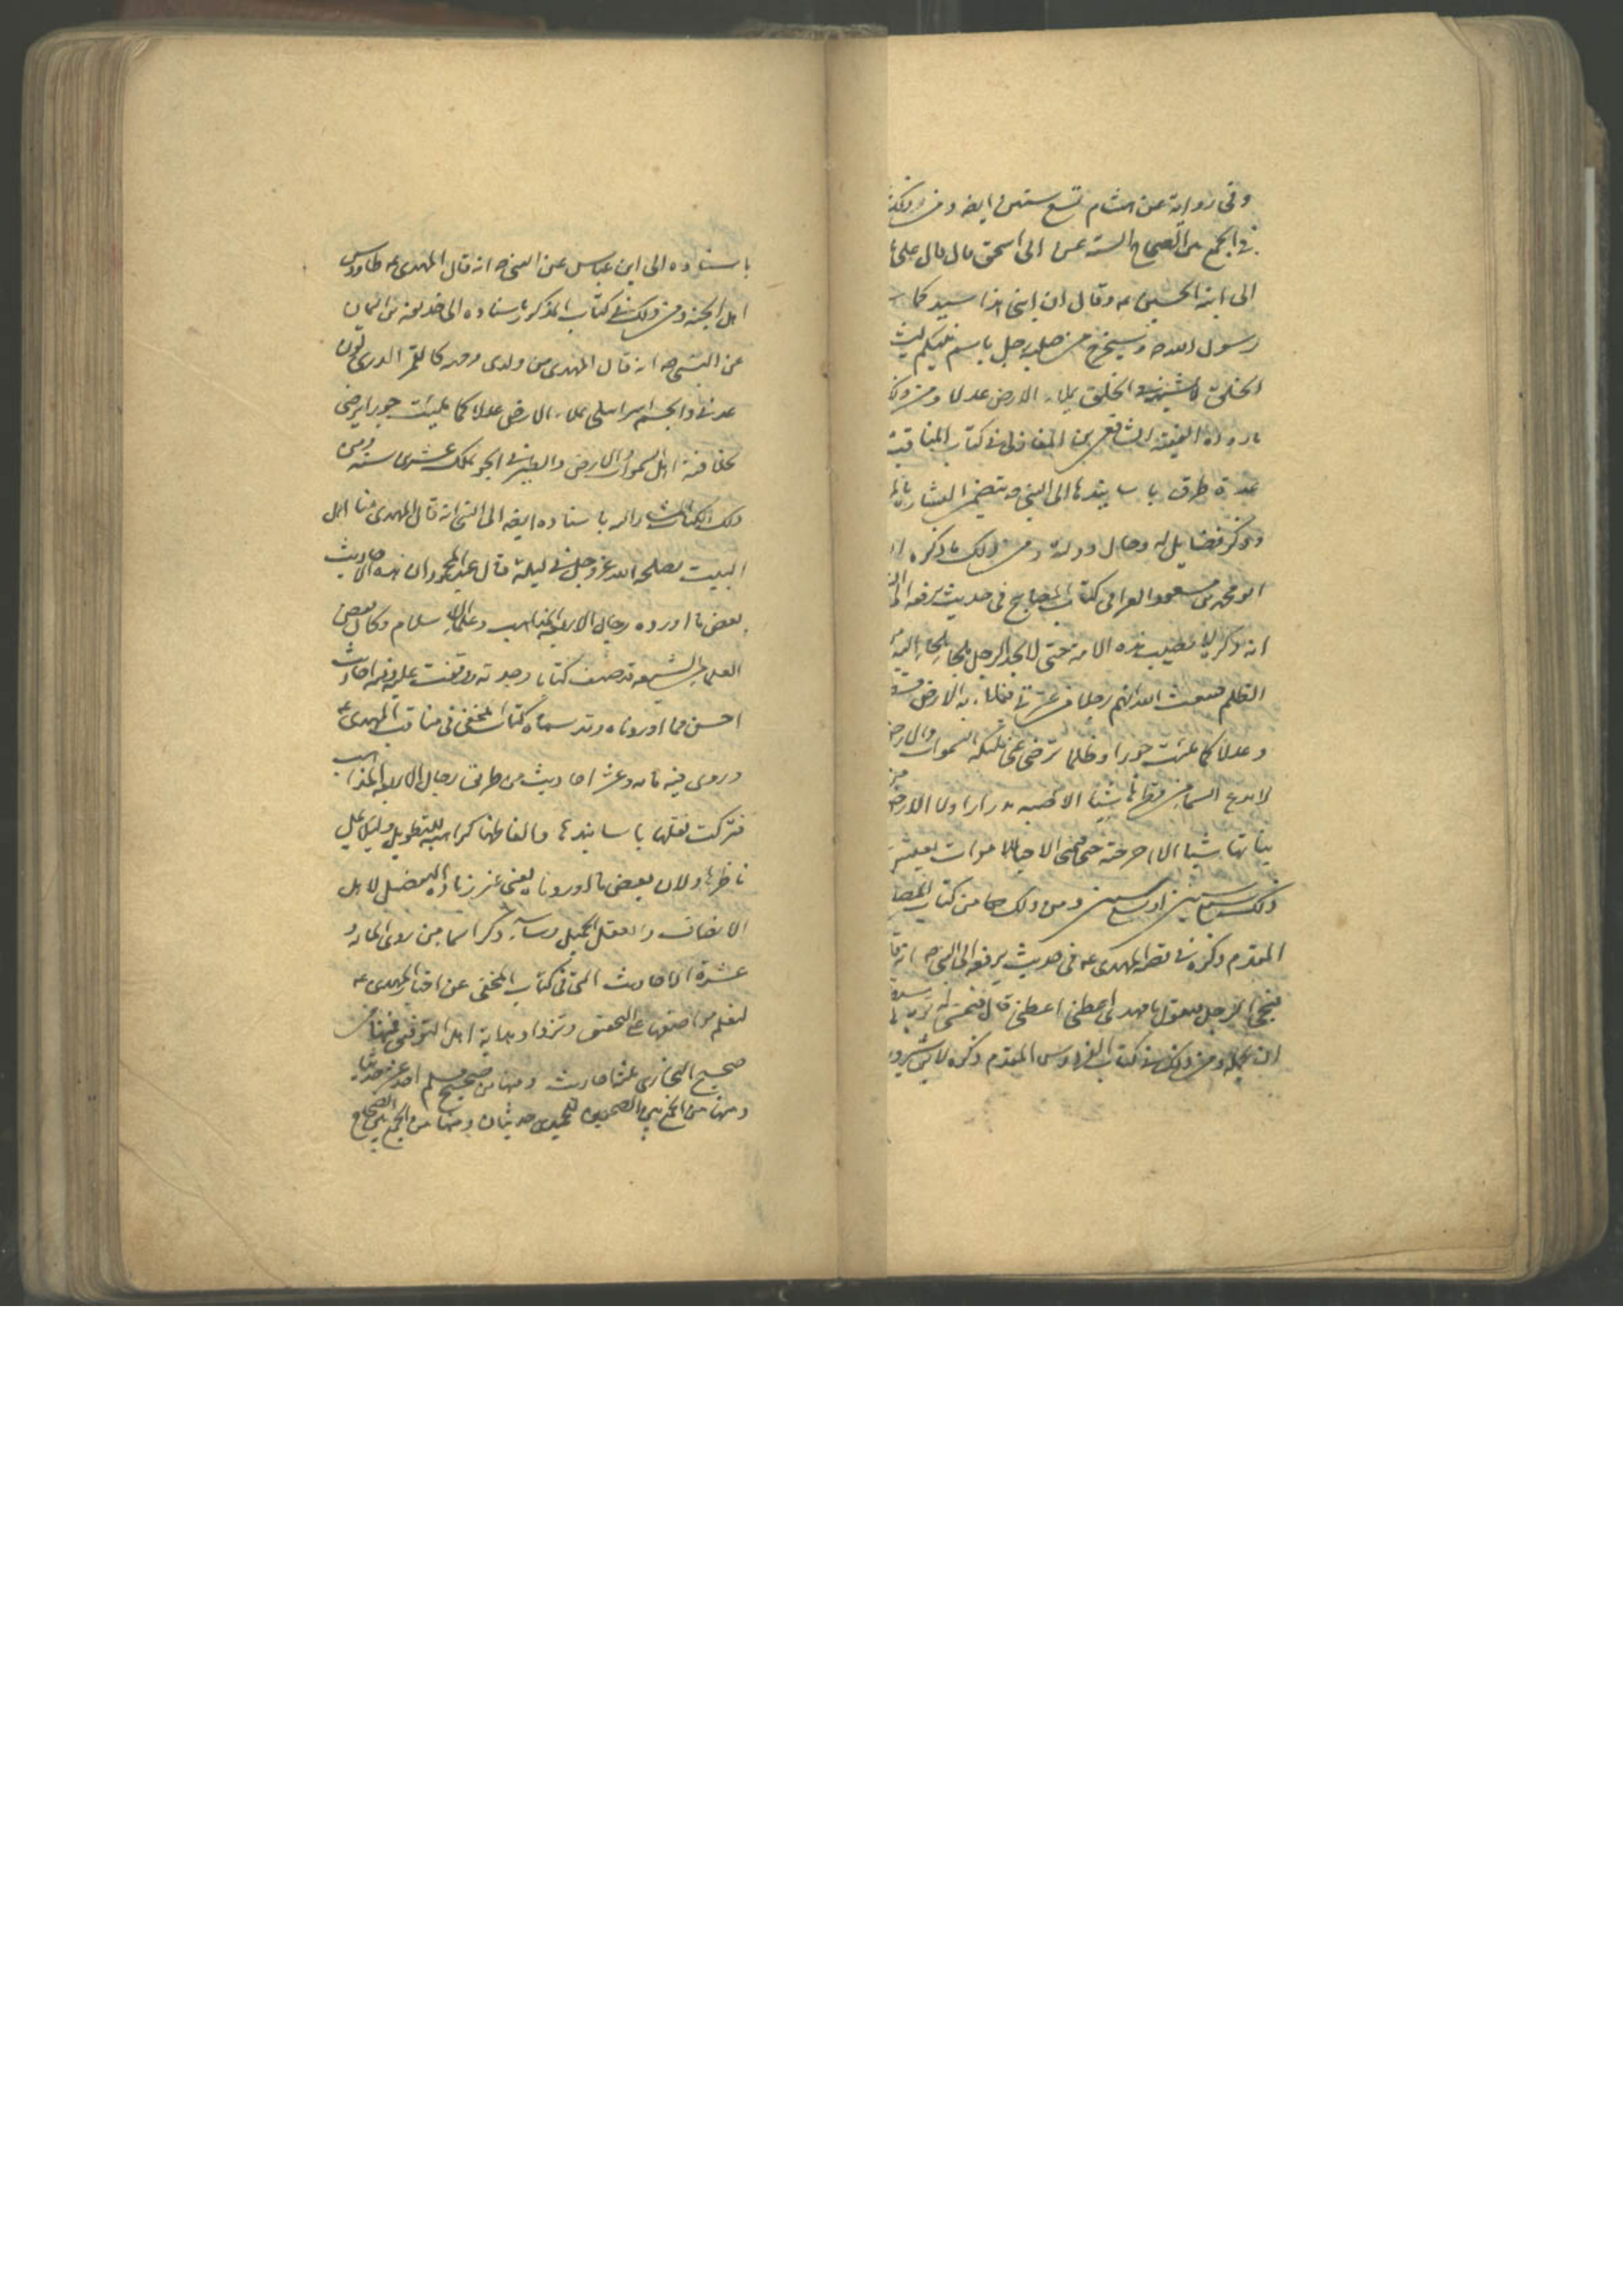 وفى رواية عن هشام تسع سنين ايضا ومن ذلك
فى الجمع بين الصحاح الستة عن ابى اسحق قال قال على
الى ابنه الحسين ع وقال ان ابنى هذا سيد كما
رسول الله ص وسيخرج من صلبه رجل باسم نبيكم
الخلق ولا يشبهه فى الخلق يملاء الارض عدلا ومن ذلك
ما رواه الفقيه الشافعى ابن المغازلى فى كتاب المناقب
عدة طرق باسانيدها الى النبى ص يتضمن البشارة
وذكر فضايله وحال دولته ومن ذلك ما ذكره
ابو محمد بن مسعود الفرا فى كتاب المصابيح فى حديث يرفعه الى
انه ذكر بلاء يصيب هذه الامة حتى لا يجد الرجل ملجا يلجا اليه
الظلم فيبعث الله لهم رجلا من عترتى فيملاء به الارض
وعدلا كما ملئت جورا وظلما يرضى عن ملئكة السموات والارض
لا يدع السماء من قطرها شيئا الا صبه مدرارا ولا الارض
نباتها شيئا الا اخرجته حتى يتمنى الاحياء الاموات يعيش
ذلك سبع سنين او تسع سنين ومن ذلك من كتاب المصابيح
المقدم ذكره فى قصة المهدى ع فى حديث يرفعه الى النبى ص انه قال
فيجى الرجل فيقول يا مهدى اعطنى اعطنى قال فيحثى له ثوبه
ان يحمله ومن ذلك فى كتاب الفردوس المقدم ذكره لابن شيرويه
باسناده الى ابن عباس عن النبى ص انه قال المهدى ع طاووس
اهل الجنة ومن ذلك فى كتاب المذكور باسناده الى حذيفة بن اليمان
عن النبى ص انه قال المهدى من ولدى وجهه كالقمر الدرى لون
عربى والجسم اسرائيلى يملاء الارض عدلا كما ملئت جورا يرضى
بخلافته اهل السموات والارض والطير فى الجو يملك عشرين سنة ومن
ذلك الكتاب باسناده ايضا الى النبى انه قال المهدى منا اهل
البيت يصلحه الله عز وجل فى ليلة قال عبد المحمود ان هذه الاحاديث
بعض ما اورده رجال الاربعة المذاهب وعلماء الاسلام وكان بعض
العلماء الشيعة قد صنف كتابا وجدته ووقفت عليه وفيه احاديث
احسن مما اوردناه وقد سماه كتاب المخفى فى مناقب المهدى ع
وروى فيه مائة وعشر احاديث من طرق رجال الاربعة المذاهب
فتركت نقلها باسانيدها والفاظها كراهية للتطويل ولئلا يمل
ناظرها ولان بعض ما اوردنا يغنى عن زيادة التفضيل لاهل
الانصاف والعقل الجميل وساذكر اسماء من روى المائة و
عشرة الاحاديث التى فى كتاب المخفى عن اخبار المهدى ع
لتعلم مواضعها على التحقيق وتزداد هداية اهل التوفيق فمنها من
صحيح البخارى ثلثة احاديث ومنها من صحيح مسلم احد عشر حديثا
ومنها من الجمع بين الصحيحين للحميدى حديثان ومنها من الجمع بين الصحاح